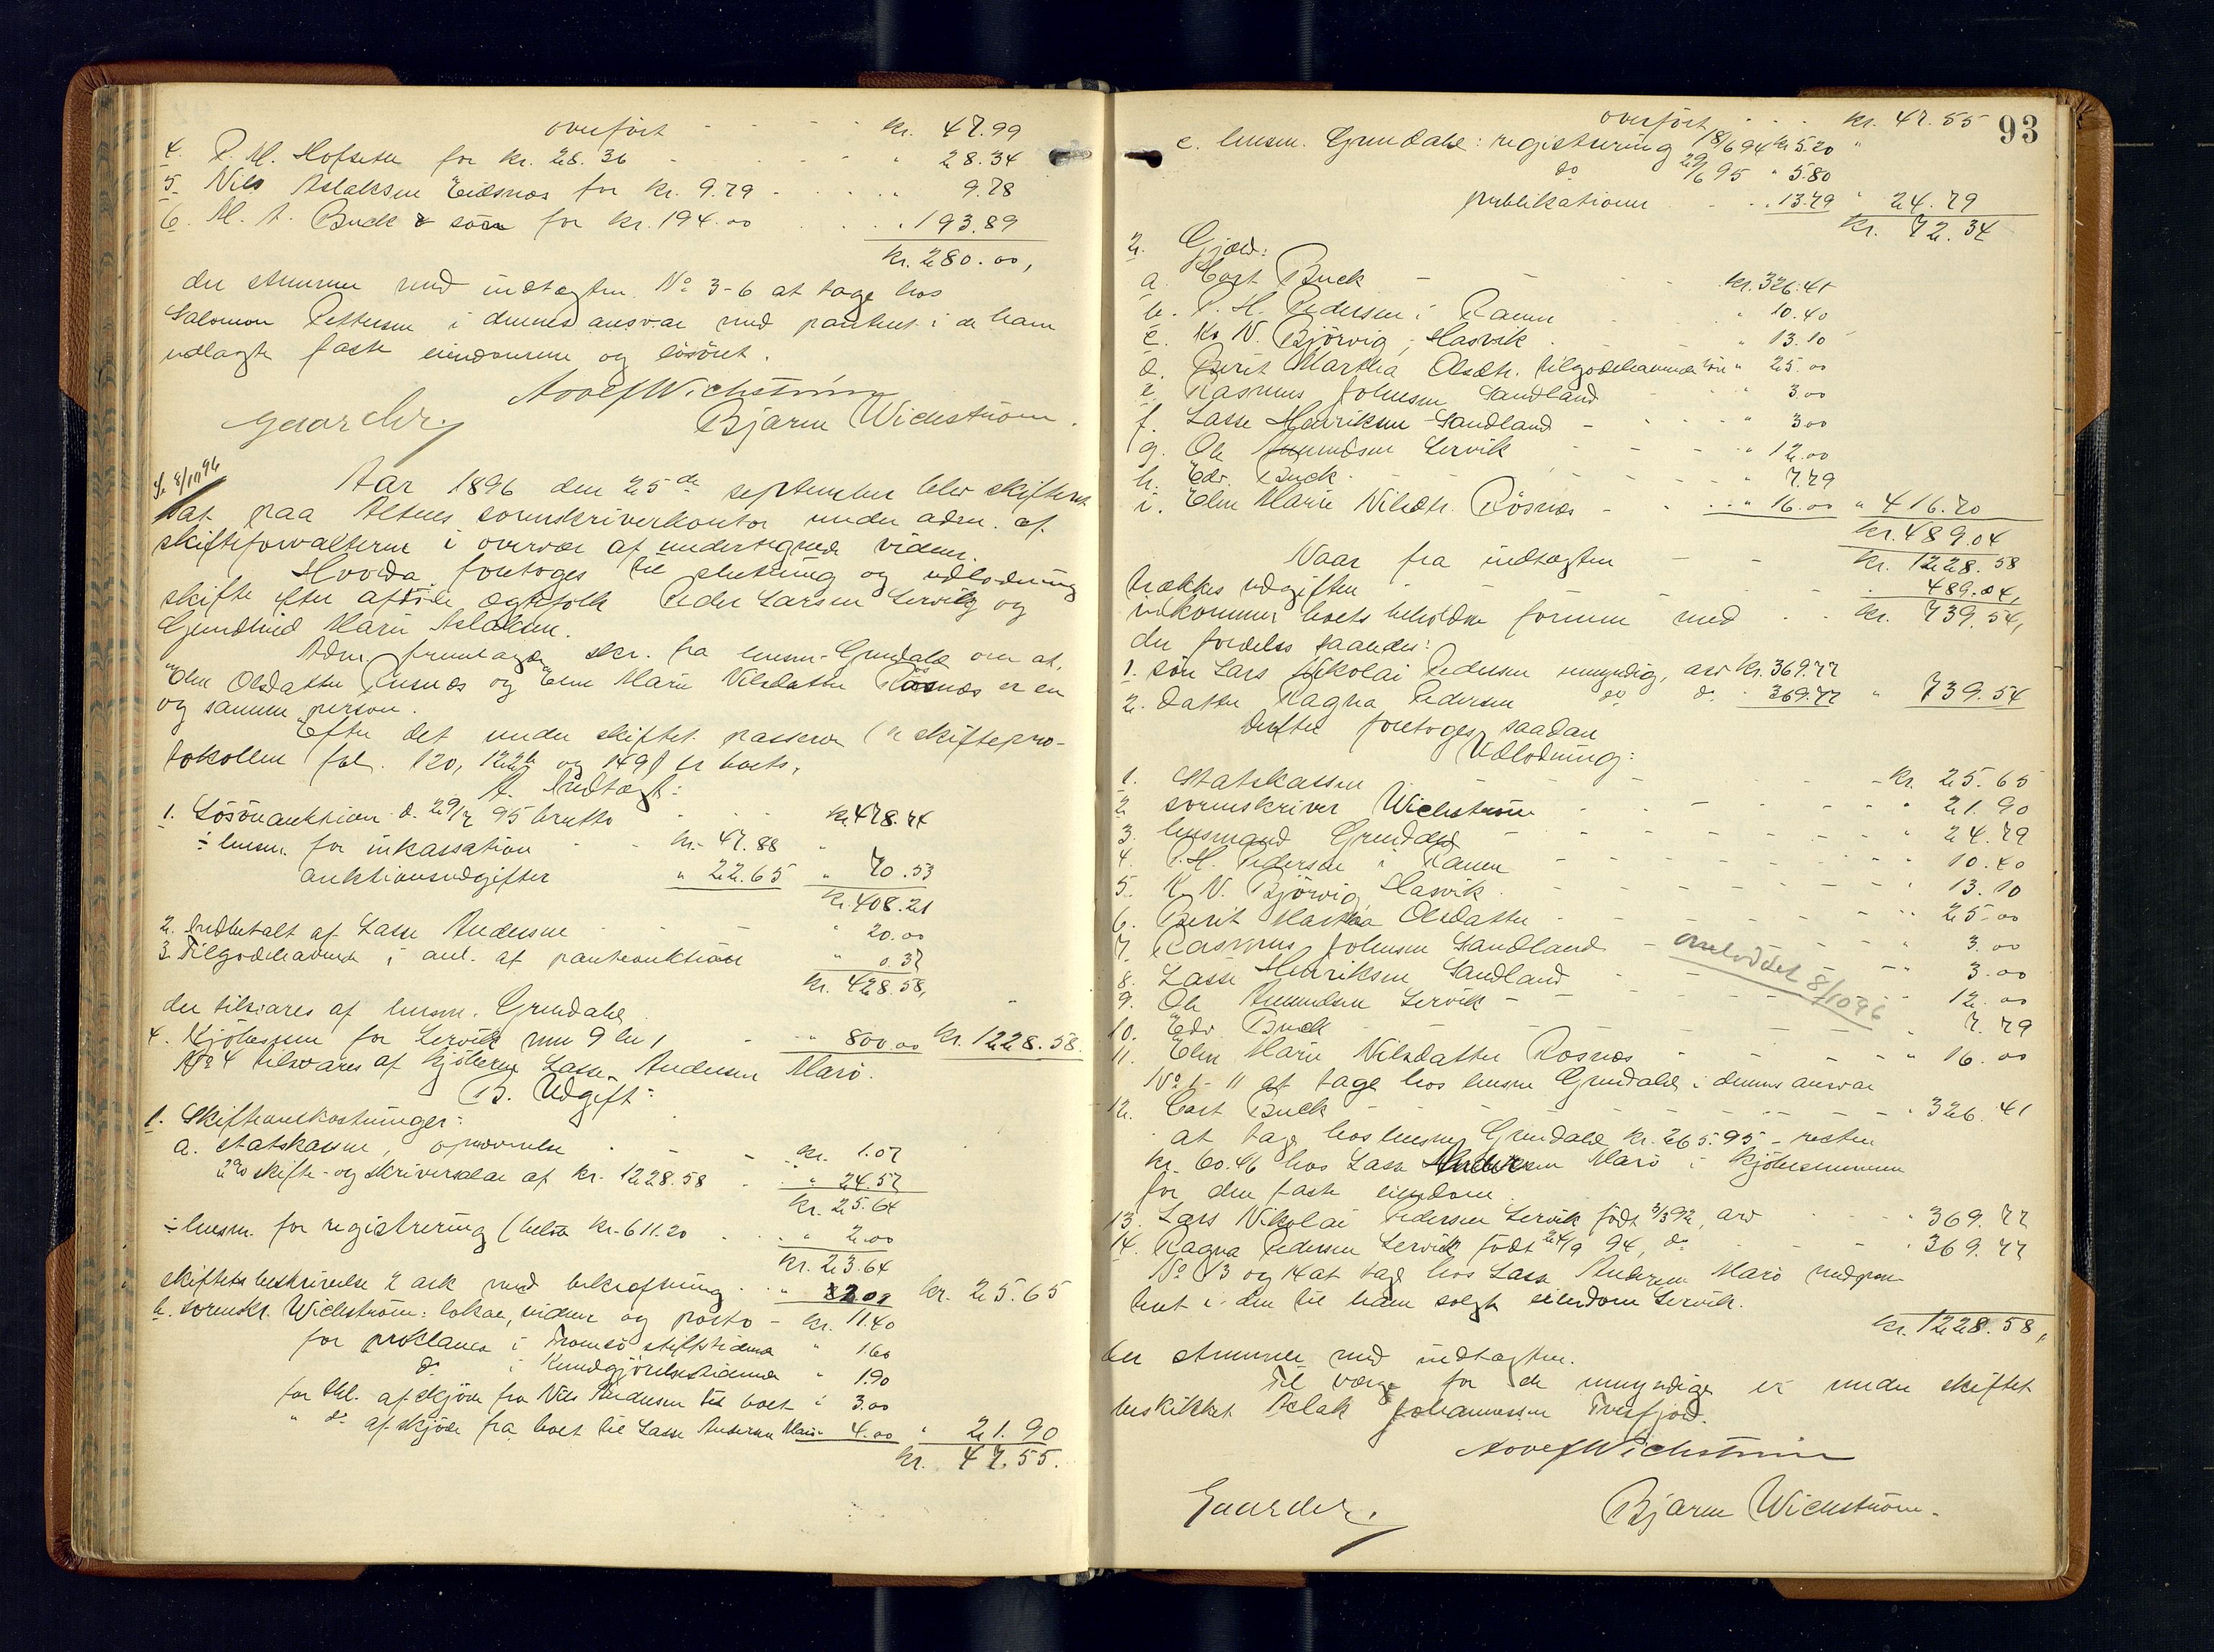 overført - - - - kr. 47.99
4. P. M. Hofseth for kr. 28.36 - - - - " 28.34
5. Nils Aslaksen Eidsnæs for kr. 9.79 - - - " 9.78
6. M. A. Buck & søn for kr. 194.00 - - - " 193.89
kr. 280.00,
der stemmer med indtægten No 3-6 at tage hos
Salomon Pettersen i dennes ansvar med panteret i de ham
udlagte faste eiendomme og løsøret.
Adolf Wichstrøm
Gaarder Bjarne Wichstrøm.
Se 8/10 96
Aar 1896 den 25de september blev skifteret
sat paa Altens sorenskriverkontor under adm. af
skifteforvalteren i overvær af undertegnede vidner.
Hvorda foretoges til slutning og udlodning
skifte efter afdøde ægtefolk Peder Larsen Lervik og
Gjendlind Marie Aslaksen.
Adm. fremlagde skr. fra lensm. Grundahl om at
"Elen Olsdatter Rusnæs og "Elen Marie Nilsdatter Røsnæs er en
og samme person.
Efter det under skiftet passerede (i skiftepro-
tokollen fol. 120, 122b og 149) er boets,
A. Indtægt:
1. Løsøreauktion d. 29/7 95 brutto - - - kr. 478.74
÷ lensm. for inkassation - - kr. 47.88 "
auktionsudgifter " 22.65 " 70.53
kr. 408.21
2. Indbetalt af Lasse Andersen - - - " 20.00
3. Tilgodehavende i anl. af panteauktion " 0.37
kr. 428.58,
der tilsvares af lensm. Grundahl
4. Kjøbesum for Lervik mn 9 bn 1 - - " 800.00 kr. 1228.58.
Nr 4 tilsvares af kjøberen Lasse Andersen Marø.
B. Udgift:
1. Skifteomkostninger:
a. statskassen, opnævnelse - - - kr. 1.07
2% skifte- og skriverdele af kr. 1228.58 - - " 24.57
kr. 25.64
÷ lensm. for registrering (beløb kr. 611.20 - - - " 2.00
kr. 23.64
skiftets beskrivelse 2 ark med bekræftning - - " 2.01 kr. 25.65
b. sorenskr. Wichstrøm: lokale, vidner og porto - kr. 11.40
for proklama i Tromsø stiftstidende " 1.60
do i Kundgjørelsestidende " 1.90
for thl. af skjøde fra Nils Andersen til boet " 3.00
" do af skjøde fra boet til Lasse Andersen Marø " 4.00 " 21.90
kr. 47.55.
93
overført - - - kr. 47.55
c. lensm. Grundahl: registrering 18/6 94 kr. 5.20 "
do 29/6 95 " 5.80
publikationer - - " 13.79 " 24.79
kr. 72.34
2. Gjæld:
a. Cort Buck - - - kr. 326.41
b. P. H. Pedersen i Ranen - - " 10.40
c. K. N. Bjørvig, Hasvik - " 13.10
d. Berit Martha Olsdtr. tilgodehavende løn " 25.00
e. Rasmus Johnsen Sandland - - " 3.00
f. Lasse Henriksen Sandland - - - " 3.00
g. Ole Amundsen Lervik - - - " 12.00
h. Edv. Buck - - - - " 7.79
i. Elen Marie Nilsdtr. Røsnæs - - - " 16.00 " 416.70
kr. 489.04
Naar fra indtægten - - - kr. 1228.58
trækkes udgiften - - - " 489.04,
udkommer boets beholdne formue med - - kr. 739.54,
der fordeles saaledes:
1. søn Lars Nikolai Pedersen umyndig, arv kr. 369.77
2. datter Ragna Pedersen do do " 369.77 " 739.54
Derefter foretoges saadan
Udlodning:
1. Statskassen - - - kr. 25.65
2. sorenskriver Wichstrøm - - - " 21.90
3. lensmand Grundahl - - - " 24.79
4. P. H. Pedersen i Ranen - - - " 10.40
5. K. N. Bjørvig, Hasvik - - - " 13.10
6. Berit Martha Olsdatter - - - " 25.00
7. Rasmus Johnsen Sandland - - - " 3.00
8. Lasse Henriksen Sandland - - - " 3.00
omloddet 8/10 96
9. Ole Amundsen Lervik - - - " 12.00
10. Edv. Buck - - - " 7.79
11. Elen Marie Nilsdatter Rosnæs - - - " 16.00
No 1-11 at tage hos lensm. Grundahl i dennes ansvar
12. Cort Buck - - - " 326.41
at tage hos lensm. Grundahl kr. 265.95 - resten
kr. 60.46 hos Lasse Andersen Marø i kjøbesummen
for den faste eiendom
13. Lars Nikolai Pedersen Lervik født 3/3 92, arv - - - " 369.77
14. Ragna Pedersen Lervik født 24/9 94, do - - - " 369.77
No 13 og 14 at tage hos Lasse Andersen Marø med pan-
teret i den til ham solgte eiendom Lervik.
kr. 1228.58,
der stemmer med indtægten.
Til værge for de umyndige er under skiftet
beskikket Aslak Johannessen Tverfjord.
Adolf Wichstrøm
Gaarder. Bjarne Wichstrøm.